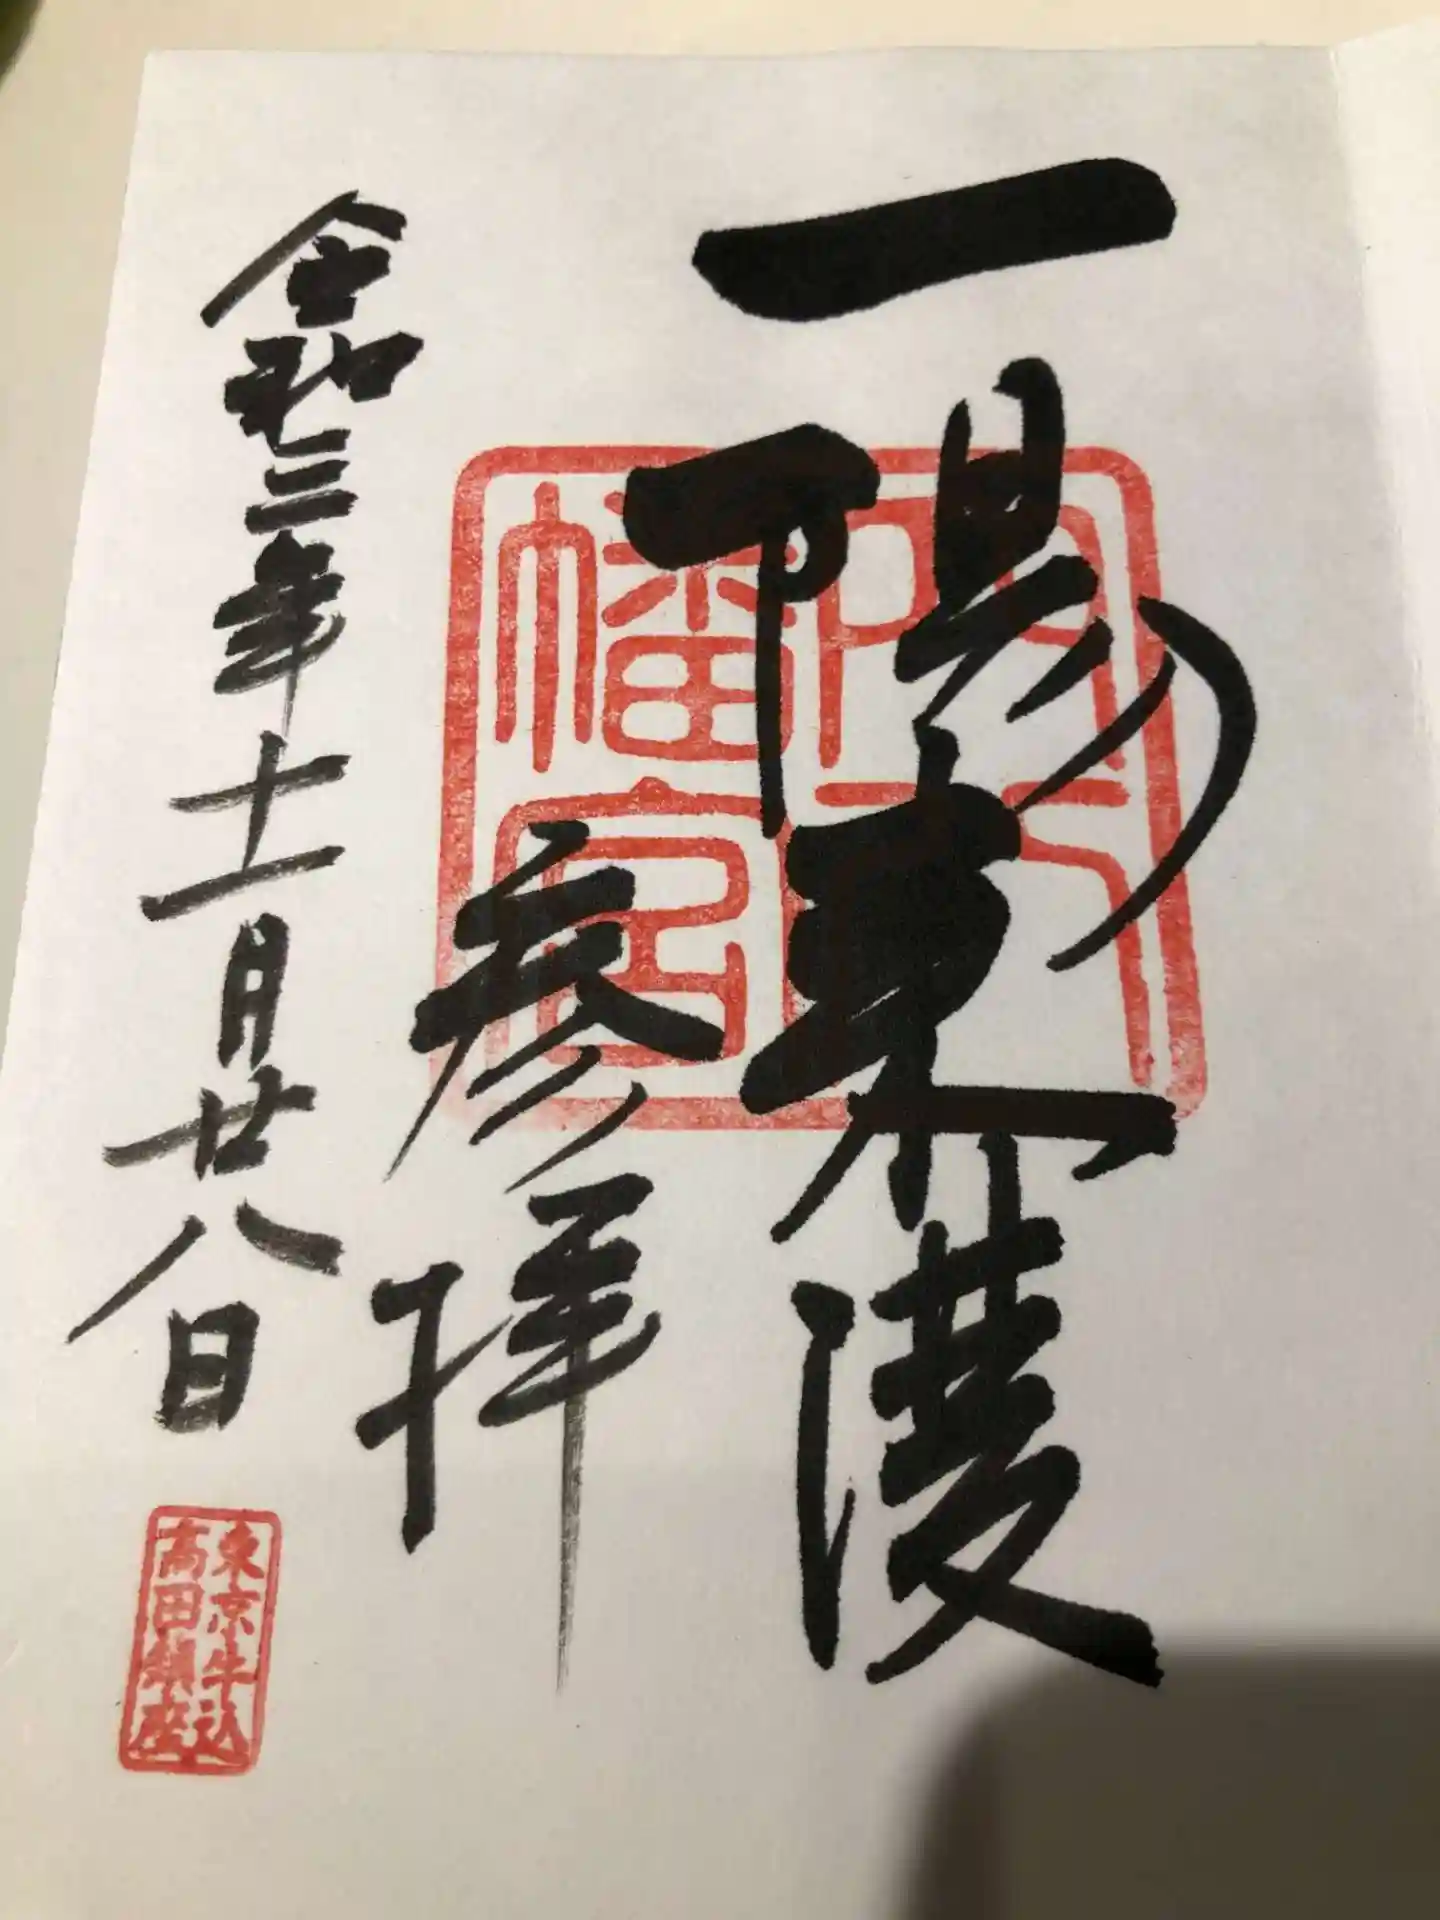 一陽来復
参拝
令和三年十一月廿八日
穴八幡宮
東京牛込
高田鎮座